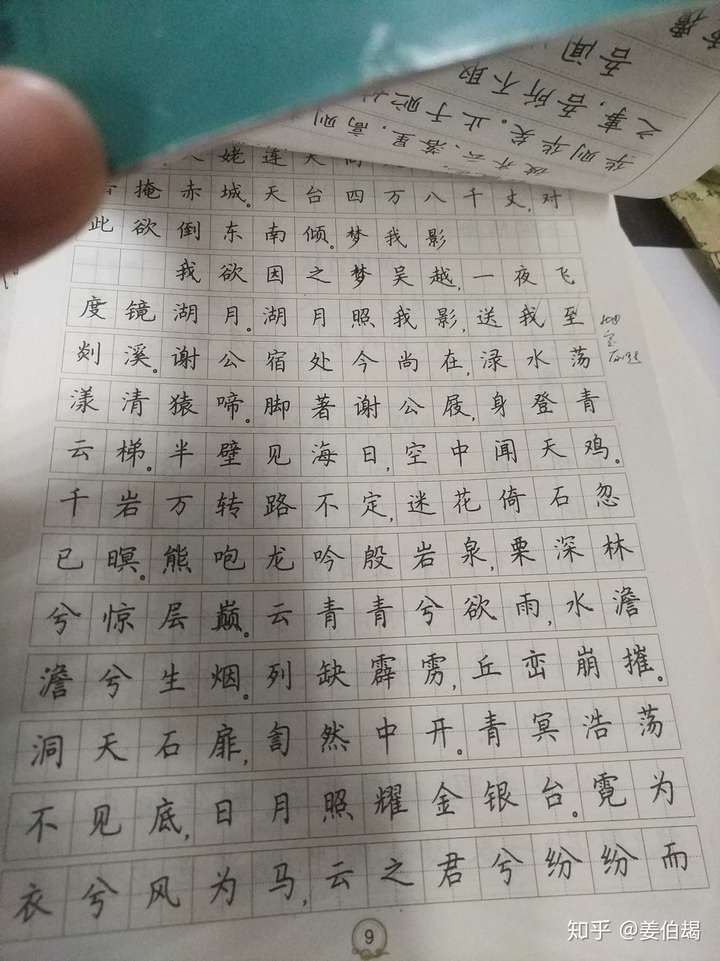 吾闻
之事,吾所不取
华则华矣。止于贮
落星,高则
姥连天
掩赤城。天台四万八千丈,对
此欲倒东南倾。梦我影
我欲因之梦吴越,一夜飞
度镜湖月。湖月照我影,送我至
剡溪。谢公宿处今尚在,渌水荡
漾清猿啼。脚著谢公屐,身登青
云梯。半壁见海日,空中闻天鸡。
千岩万转路不定,迷花倚石忽
已暝。熊咆龙吟殷岩泉,栗深林
兮惊层巅。云青青兮欲雨,水澹
澹兮生烟。列缺霹雳,丘峦崩摧。
洞天石扉,訇然中开。青冥浩荡
不见底,日月照耀金银台。霓为
衣兮风为马,云之君兮纷纷而
9
知乎 @姜伯